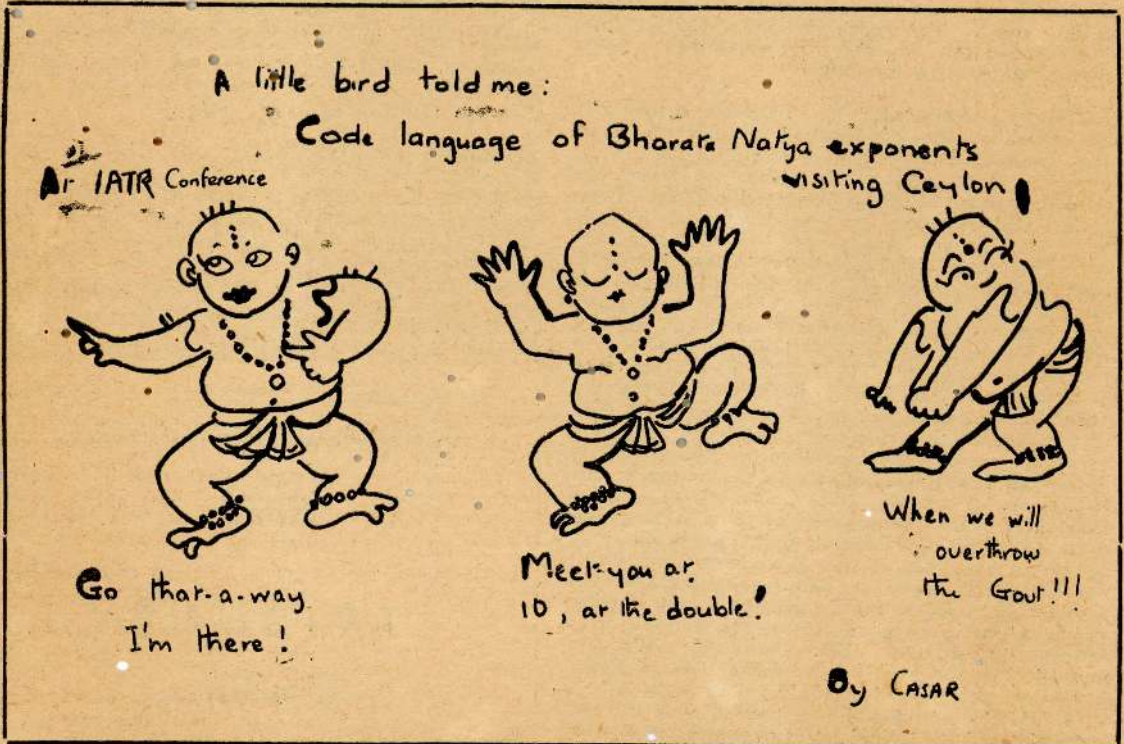 A little bird told me:
Code language of Bharata Natya exponents
visiting Ceylon!
At IATR Conference
Go that-a-way
I'm there!
Meet-you at
10, at the double!
When we will
overthrow
the Govt!!!
By CASAR